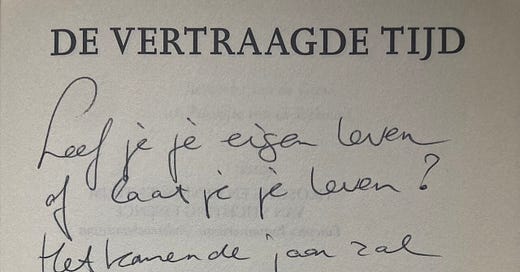 DE VERTRAAGDE TIJD
Leef je je eigen leven
of laat je je leven?
Het komende jaar zal